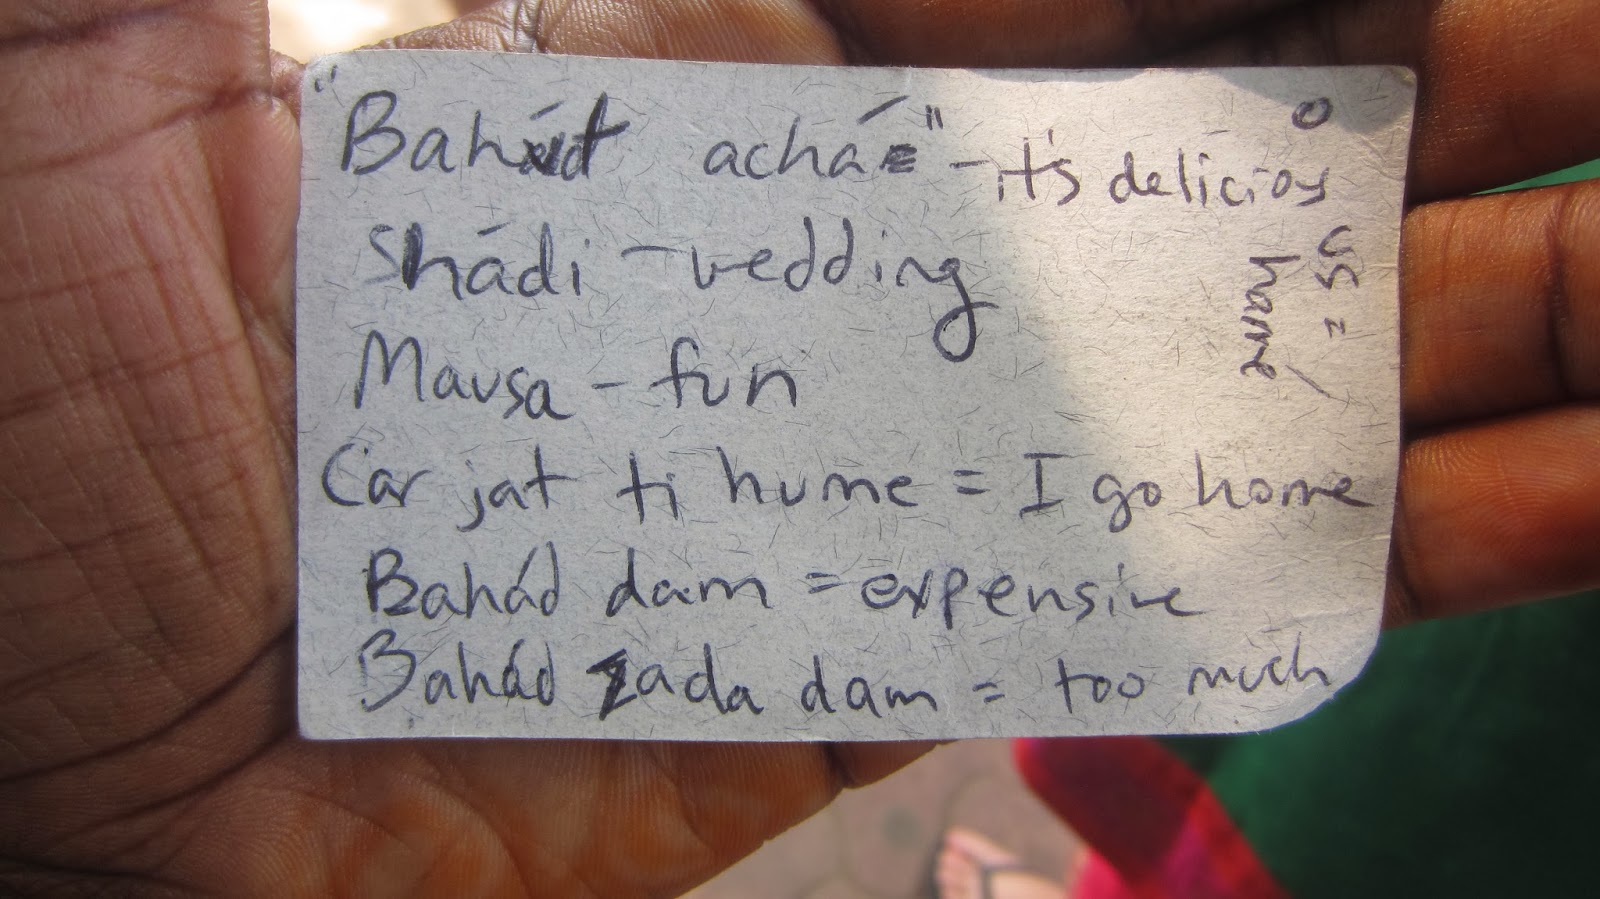 "Bahut achá" - it's delicious
Shádi - wedding
Mausa - fun
Car jat ti hume = I go home
Bahád dam = expensive
Bahád zada dam = too much